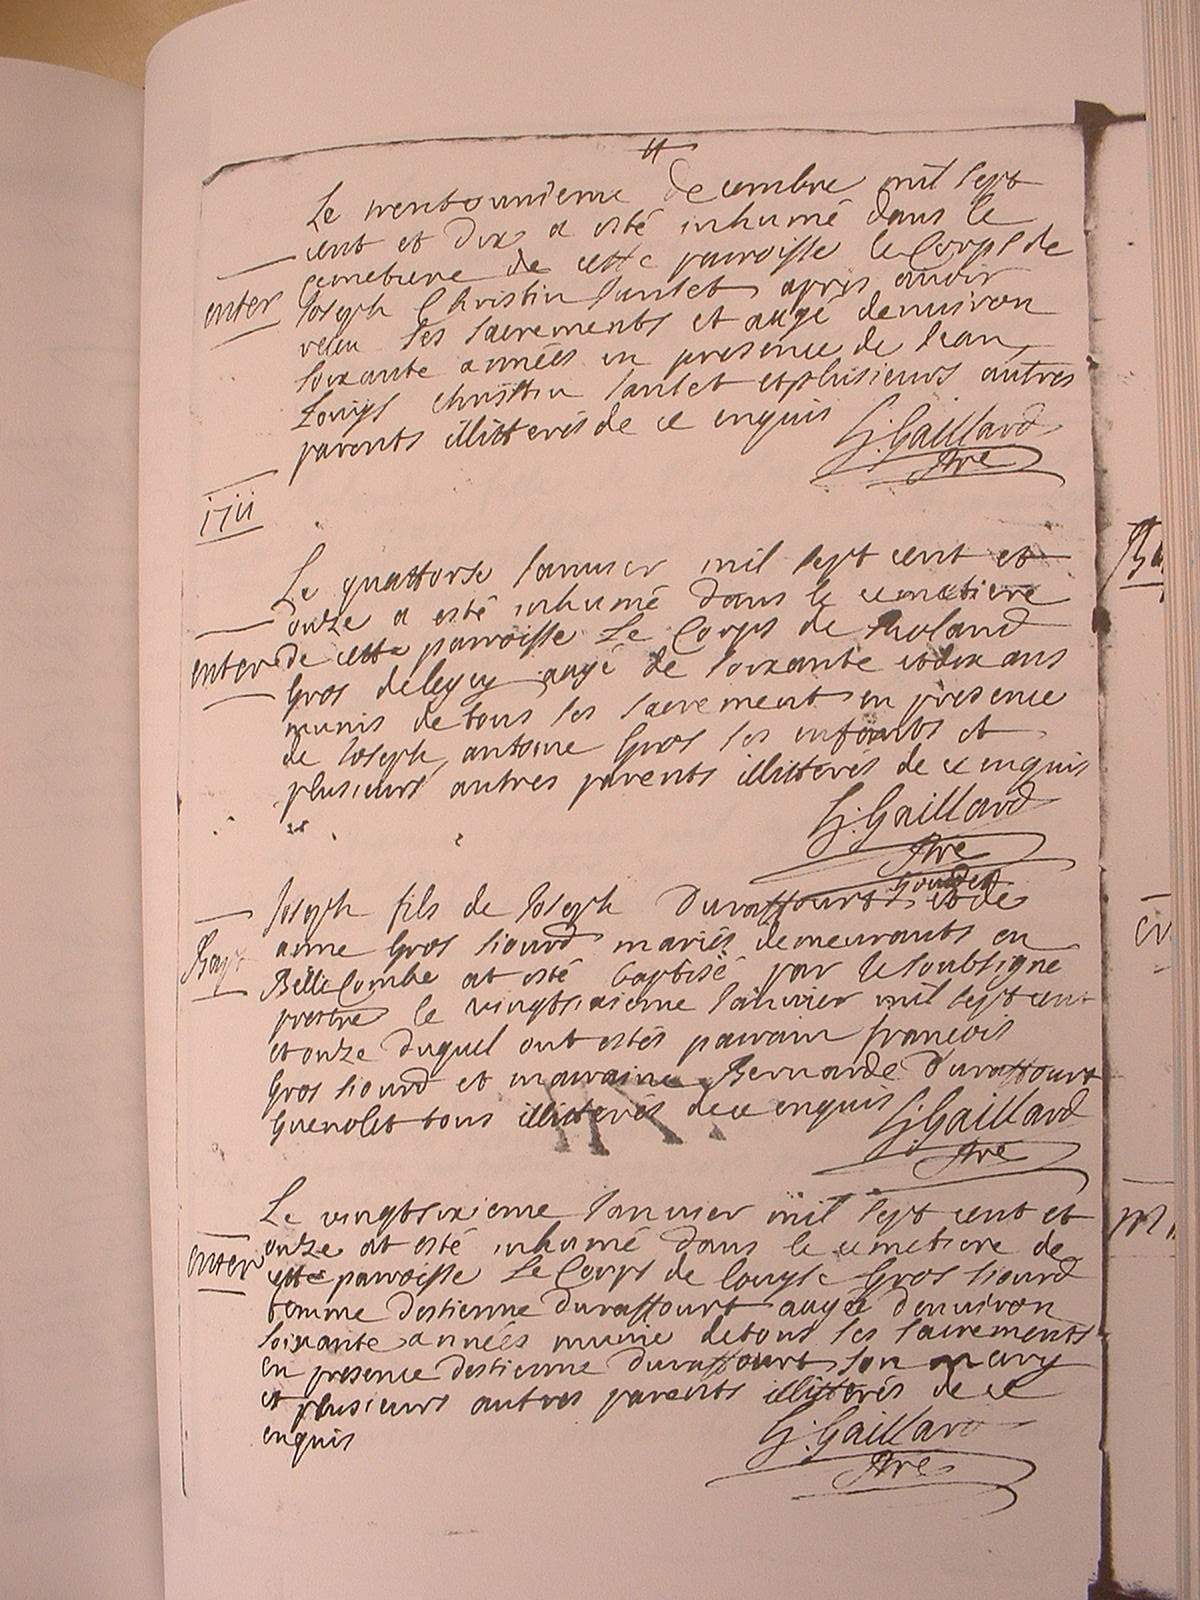 Le trentounieme decembre mil sept
cent et dix a esté inhumé dans le
cemetiere de cette parroisse le Corps de
enter Joseph Christin Jantet apres avoir
receu les sacrements et augé denuiron
soixante années en presence de Jean
Louijs Christin Jantet et plusieurs autres
parents illitterés de ce enquis G: Gaillard
Ptre
1711
Le quattorse Januier mil sept cent et
onze a esté inhumé dans le cemetiere
enter de cette parroisse Le Corps de Roland
Gros augé de soixante et dix ans
munis de tous les sacrement en presence
de Joseph, antoine Gros ses enfants et
plusieurs autres parents illitterés de ce enquis
G: Gaillard
Ptre
Joseph fils de Joseph Duraffourt et de
Bapt anne Gros liourd mariés demeurants en
Belle Combe at esté baptisé par le soubsigné
prestre le vingtsixieme Januier mil sept cent
et onze duquel ont estés parrain francois
Gros liourd et marraine Bernarde Duraffourt
tous illitterés de ce enquis G: Gaillard
Ptre
Le vingtsixieme Januier mil sept cent et
onze at esté inhumé dans le cemetiere de
enter cette parroisse Le Corps de Louyse Gros liourd
femme destienne Duraffourt augée denuiron
soixante années munie de tous les sacrements
en presence destienne duraffourt son mary
et plusieurs autres parents illitterés de ce
enquis
G: Gaillard
Ptre